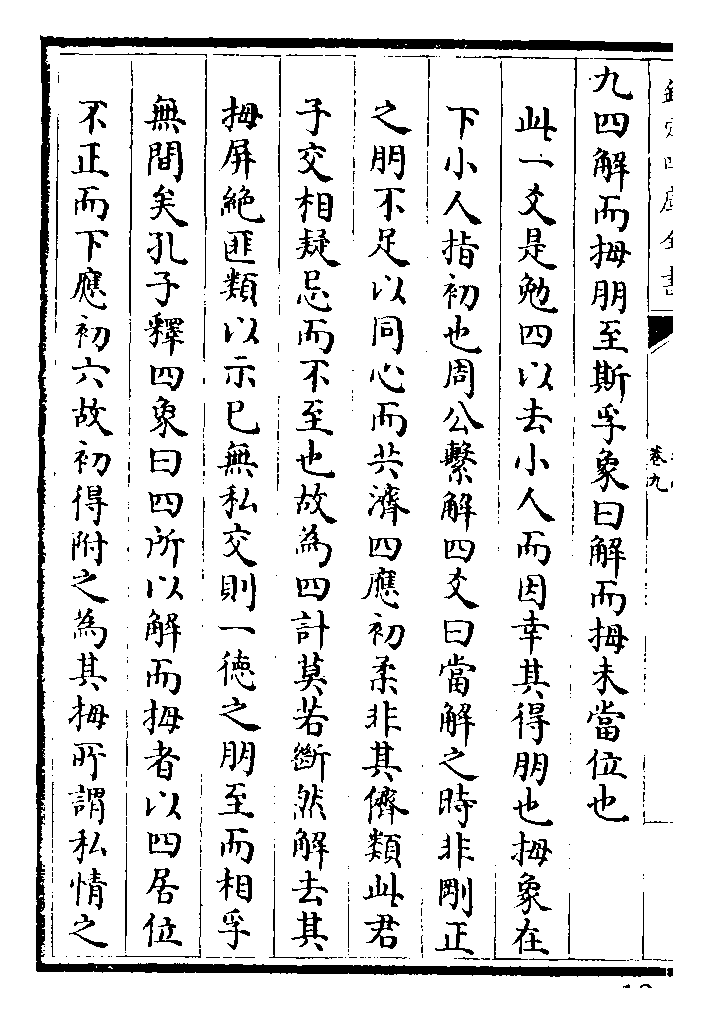 欽定四庫全書
卷九
九四解而拇朋至斯孚象曰解而拇未當位也
此一爻是勉四以去小人而因幸其得朋也拇象在
下小人指初也周公繫解四爻曰當解之時非剛正
之朋不足以同心而共濟四應初柔非其儕類此君
子交相疑忌而不至也故為四計莫若斷然解去其
拇屏絶匪類以示已無私交則一德之朋至而相孚
無間矣孔子釋四象曰四所以解而拇者以四居位
不正而下應初六故初得附之為其拇所謂私情之